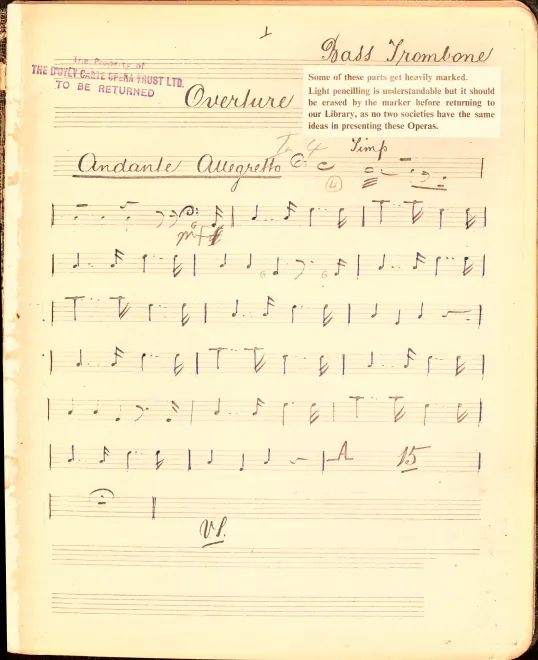 1
Bass Trombone
The Property of
THE D'OYLY CARTE OPERA TRUST LTD.
TO BE RETURNED
Overture
Some of these parts get heavily marked.
Light pencilling is understandable but it should
be erased by the marker before returning to
our Library, as no two societies have the same
ideas in presenting these Operas.
In 4
Timp
Andante Allegretto
C
4
mf
G
G
G
A
15
V.S.